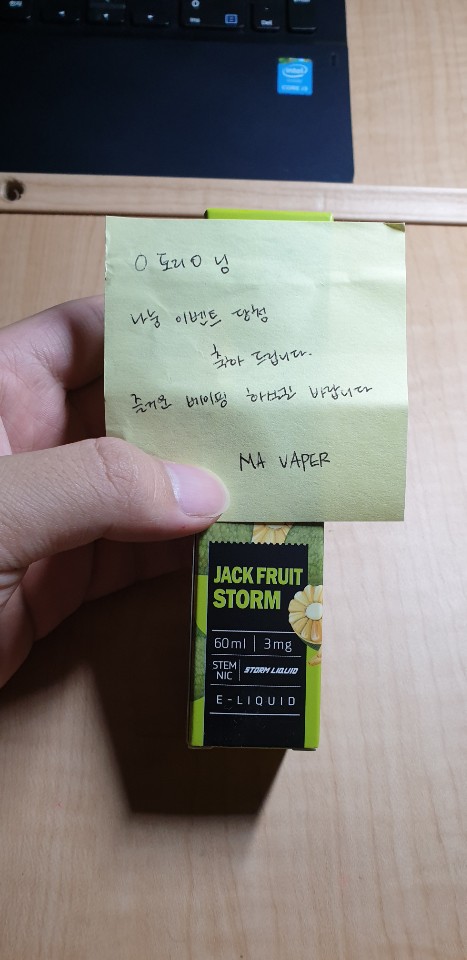 intel
CORE i3
Del
O 토리O 님
나눔 이벤트 당첨
축하 드립니다.
즐거운 베이핑 하시길 바랍니다
MA VAPER
JACK FRUIT
STORM
60ml | 3mg
STEM
NIC
STORM LIQUID
E-LIQUID